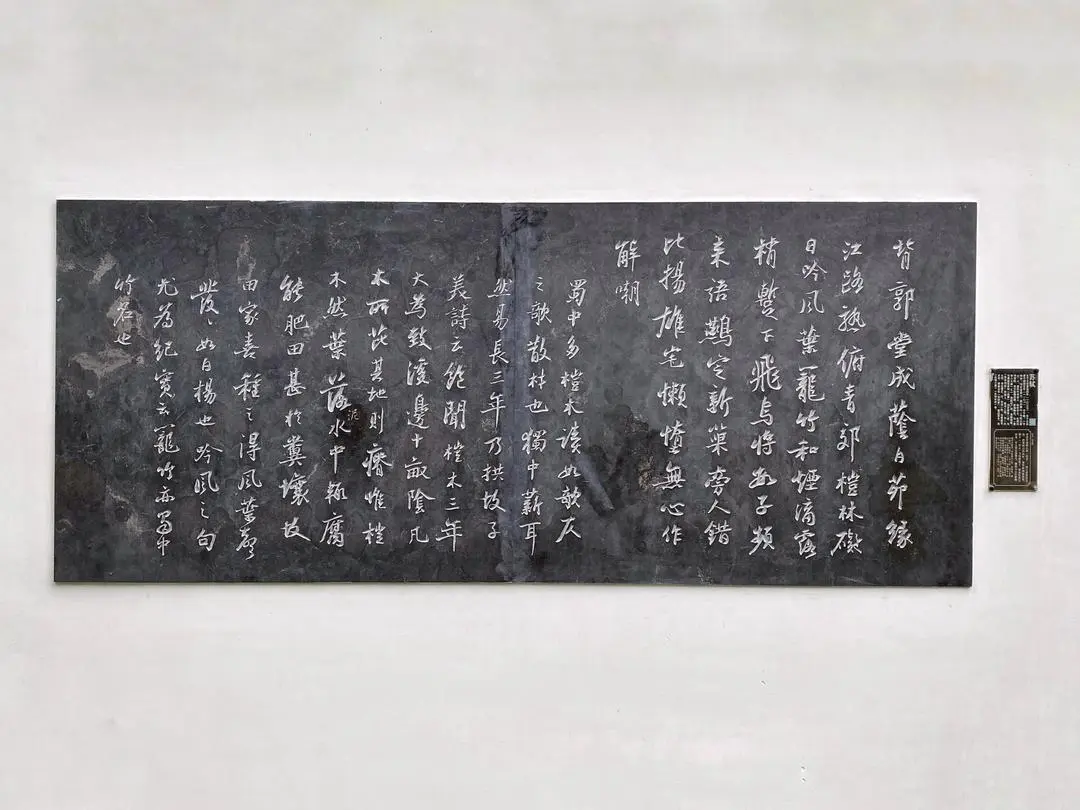 背郭堂成蔭白茅緣
江路熟俯青郊榿林礙
日吟風葉籠竹和煙滴露
梢暫下飛烏將數子頻
来語鷰定新巢旁人錯
比揚雄宅懶惰無心作
解嘲
蜀中多榿木讀如欹仄
之欹散材也獨中薪耳
然易長三年乃拱故子
美詩云飽聞榿木三年
大為致溪邊十畝陰凡
木所芘其地則瘠惟榿
不然葉落泥水中輒腐
能肥田甚於糞壤故
田家喜種之得風葉聲
發々如白楊也吟風之句
尤為紀實云籠竹亦蜀中
竹名也